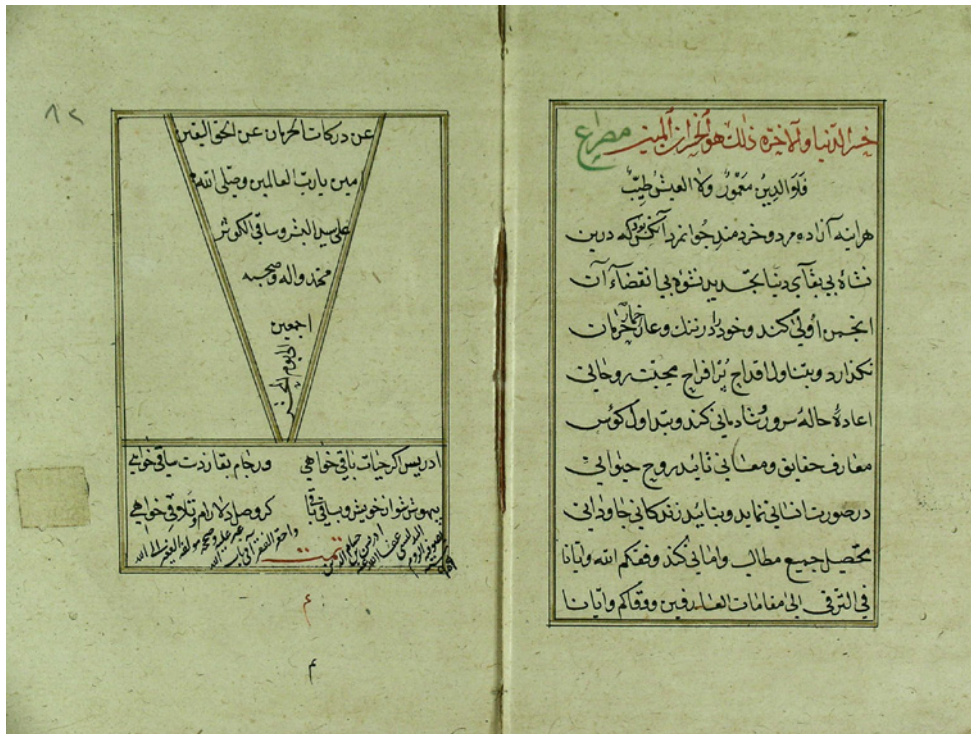 خسر الدنيا والآخرة ذلك هو الخسران المبين مصراع
فلا الدين معمور ولا العيش طيب
هراینه آزاده مرد و خردمند جوانمرد آنکس بود که درین
نشاه بی بقآی دنیا بتجدید نشوه بی انقضاء آن
انجمن اولی کند و خود را در ننك وعار خمار حرمان
نکذارد و بتناول اقداح پر افراح محبت روحانی
اعادۀ حاله سرور و شادمانی کند و بتداول کوس
معارف حقایق ومعانی تایید روح حیوانی
در صورت انسانی نماید و بتایید زندکانی جاودانی
تحصیل جمیع مطالب و امانی کند وفقكم الله وايانا
في الترقي الى مقامات العارفين ووقاكم وايانا
٨٢
عن دركات الحرمان عن الحق اليقين
امين يا رب العالمين وصلى الله
على سيد البشر وساقي الكوثر
محمد واله وصحبه
اجمعين الى يوم المحشر
ادریس اکر حیات باقی خواهی ورجام بقا زدست ساقی خواهی
بیهوش شو از خویش و بساقی باقی کر وصل دلارام و تلاقی خواهی
تمت
م